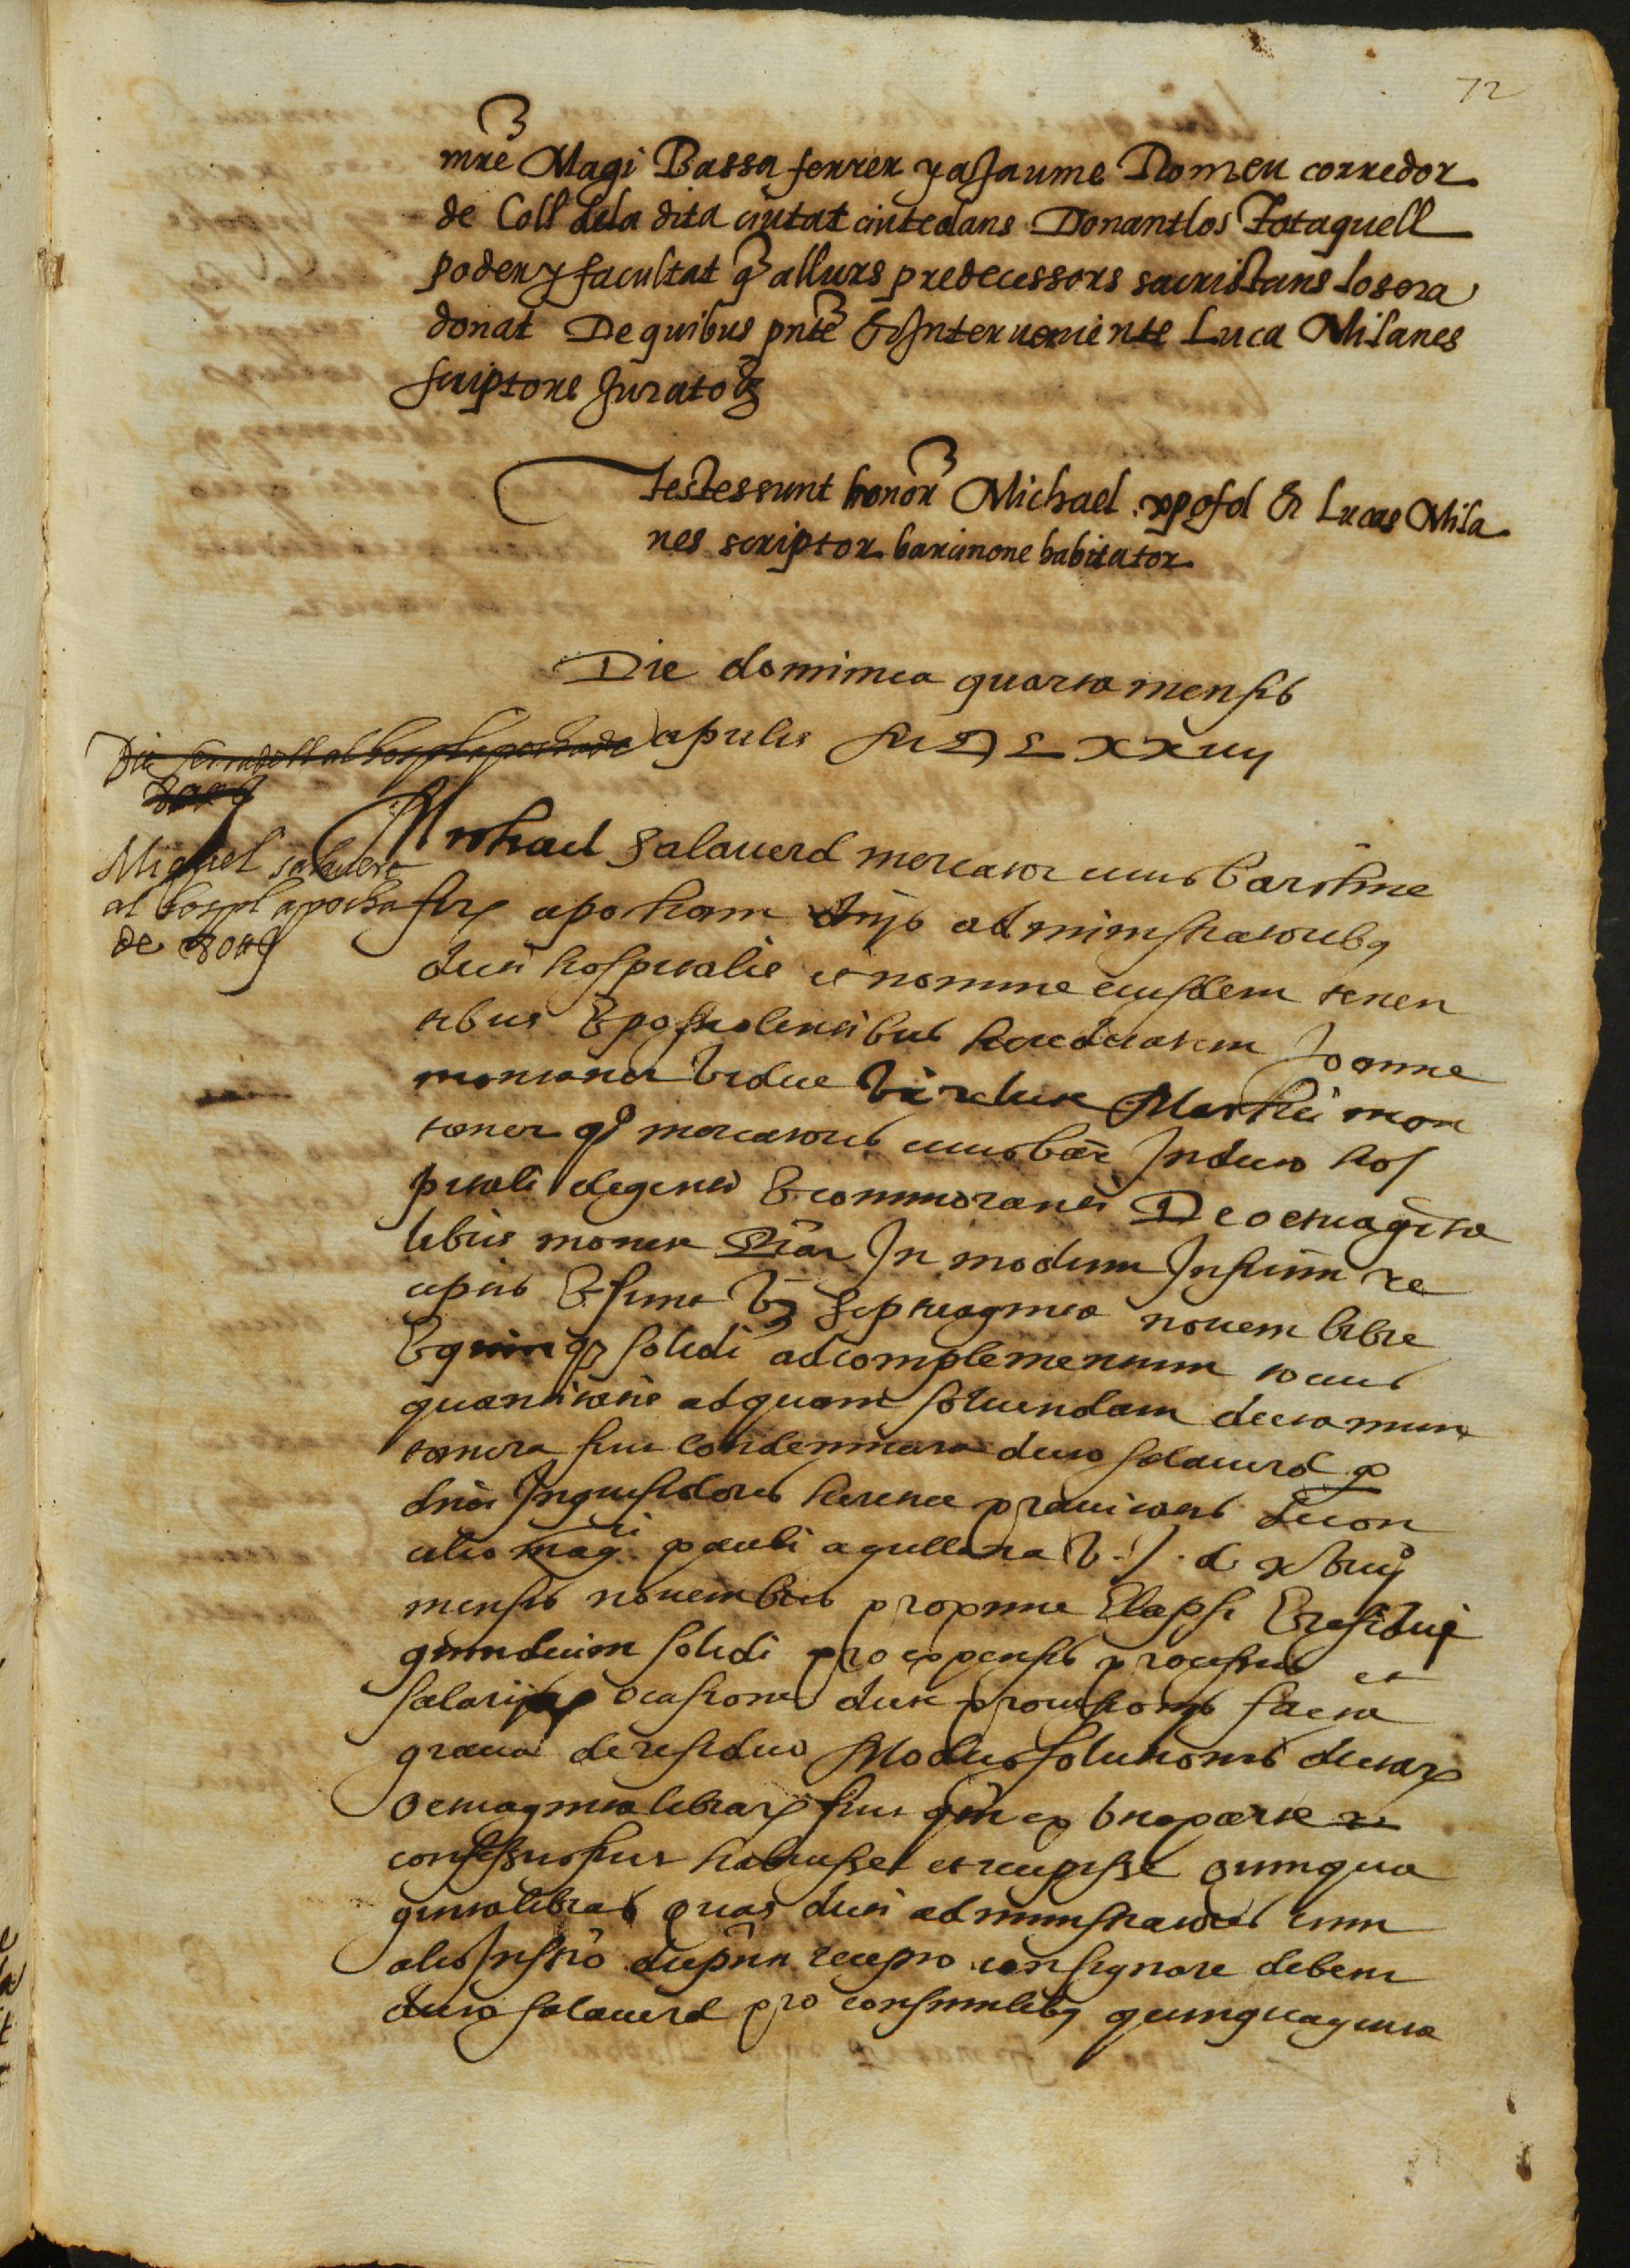 72
mre Magi Bassa ferrer y a Jaume Romeu corredor
de Coll dela dita ciutat ciutedans Donantlos totaquell
poder y facultat q allurs predecessors sacristans losera
donat De quibus pnte & Interveniente Luca Milanes
scriptore Jurato &
Testes sunt honor Michael xpofol & Lucas Mila
nes scriptor barcinone habitator
Die dominica quarta mensis
aprilis MDLxxviiij
Miquel salauert
al hospl apocha
de
Michael Salauerd mercator ciuis Barchine
firm apocham dnis administratoribq
dicti hospitalis et nomine eiusdem tenen
tibus & possidentibus hereditatem Joanne
montaner vidue vxoris Mathei mon
taner q mercatoris ciuis bar In dicto hos
pitali degenti & commoranti De octuaginta
libris monete Bar In modum Infrim re
ceptis & sunt vz septuaginta novem libre
& quinq solidi ad complementum totius
quantitatis ad quam soluendam dicta mun
tanera fuit condemnata dicto salauerd p
dnos Inquisidores heretice prauitatis
mag pauli agullana V. J. d. xviiij
mensis nouembris proxime Elapsi & residui
quindecim solidi pro expensis processus et
salarijs ocasione dicte prouisionis facta
gratia de residuo Modus solutionis dictar
octuaginta librar fuit qm ex vna parte
confessus fuit habuisse et recepisse quinqua
ginta libras quas dicti administratores cum
alio Instro dicpnn recepto consignare debent
dicto salauerd pro consimilibq quinquaginta